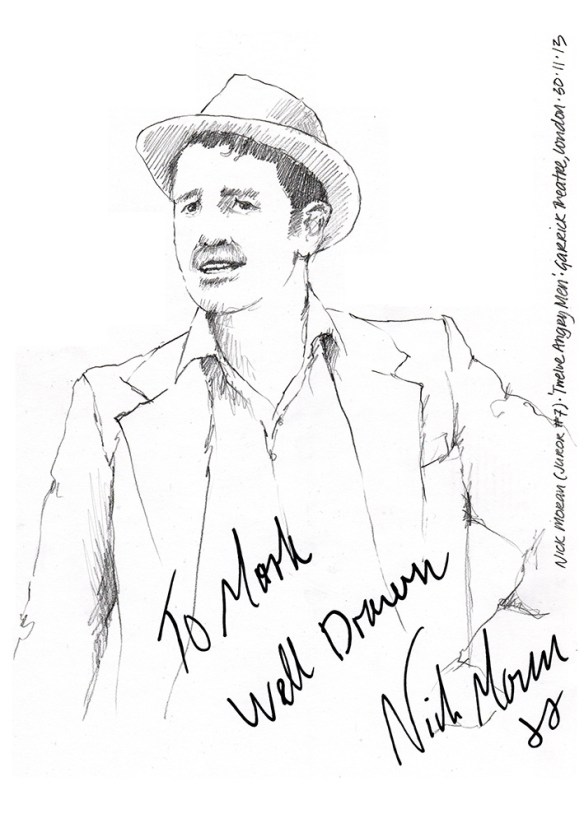 NICK MORAN (JUROR #7) · 'Twelve Angry Men' · GARRICK Theatre, London · 30 · 11 · 13
To Mark
Well Drawn
Nick Moran
xx